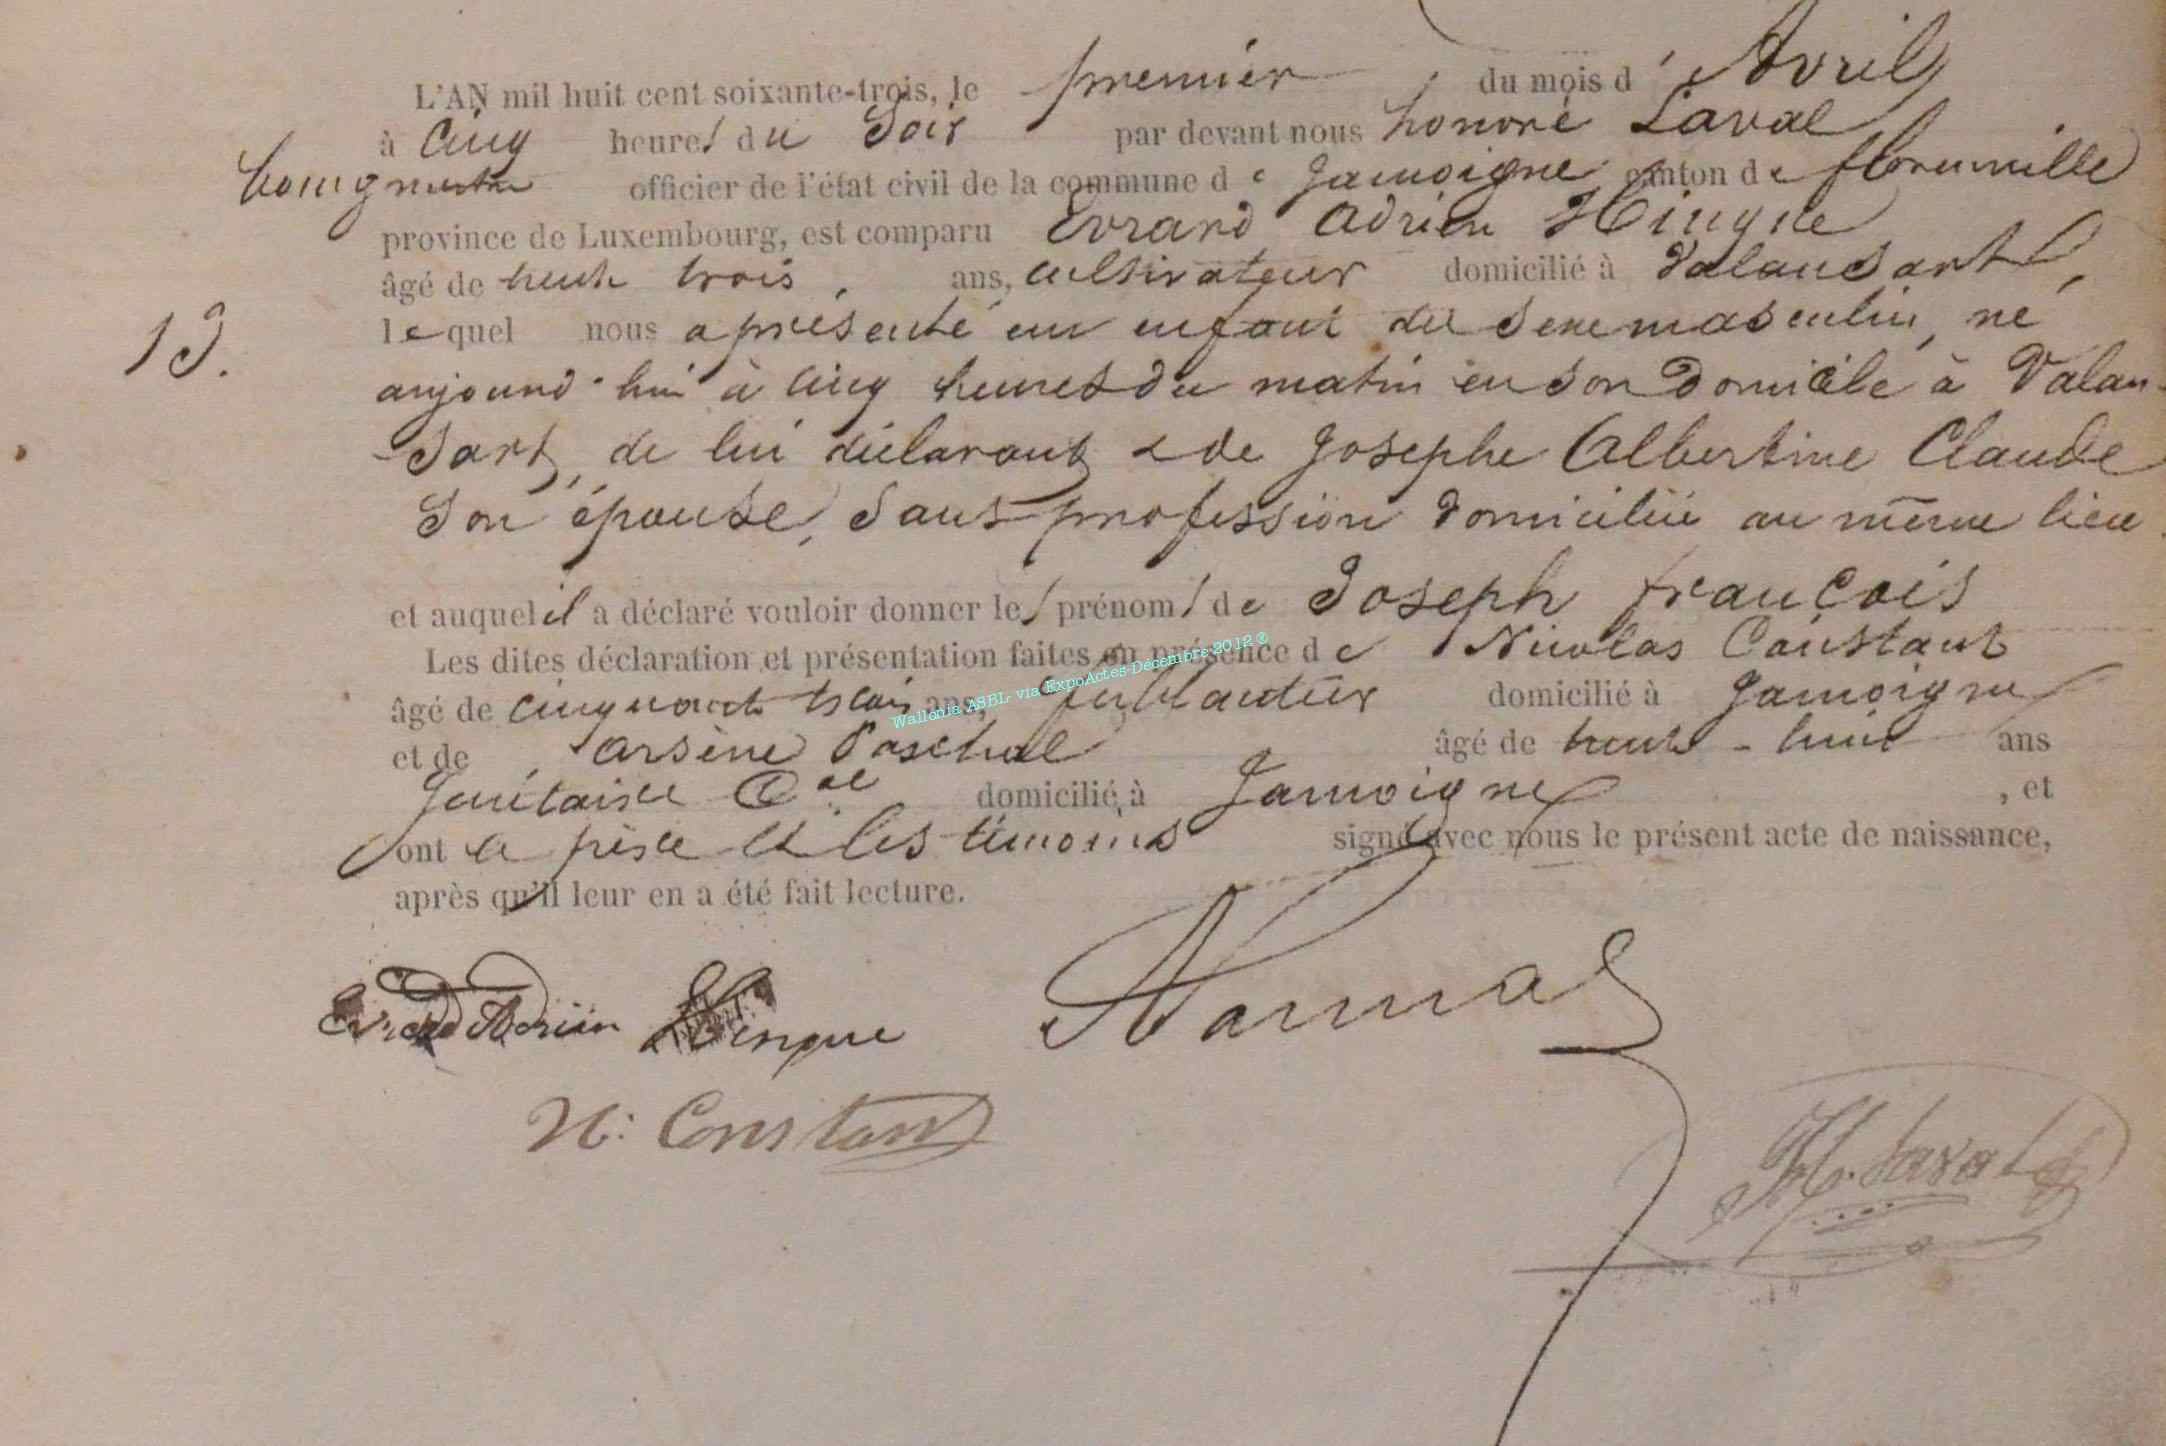 L'AN mil huit cent soixante-trois, le premier du mois d'Avril
à Cinq heures du Soir par devant nous honoré Laval
bourgmestre officier de l'état civil de la commune de Jamoigne canton de florenville
province de Luxembourg, est comparu Evrard Adrien Hingue
âgé de trente trois ans, cultivateur domicilié à Valansart,
lequel nous a présenté un enfant du sexe masculin, né
13.
aujourd'hui à cinq heures du matin en son domicile à Valan-
sart, de lui déclarant & de Josephe Albertine Claude
son épouse, sans profession domiciliée au même lieu.
et auquel il a déclaré vouloir donner les prénoms de Joseph françois
Les dites déclaration et présentation faites en présence de Nicolas Constant
âgé de cinquante trois ans, ferblantier domicilié à Jamoigne
Wallonia ASBL via ExpoActes Décembre 2012 ®
et de arsène Paschal âgé de trente-huit ans
Secrétaire Cal domicilié à Jamoigne, et
ont le père et les témoins signé avec nous le présent acte de naissance,
après qu'il leur en a été fait lecture.
Evrard Adrien Hingue
N: Constant
H. Laval